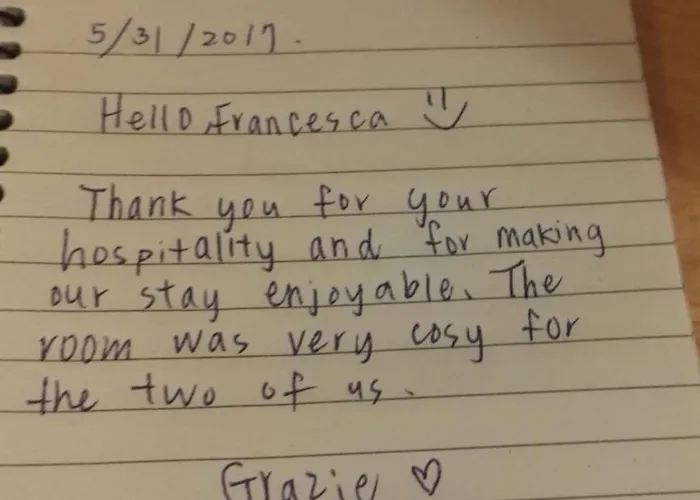 5/31/2017.
Hello Francesca
Thank you for your
hospitality and for making
our stay enjoyable. The
room was very cosy for
the two of us.
Grazie, ♡